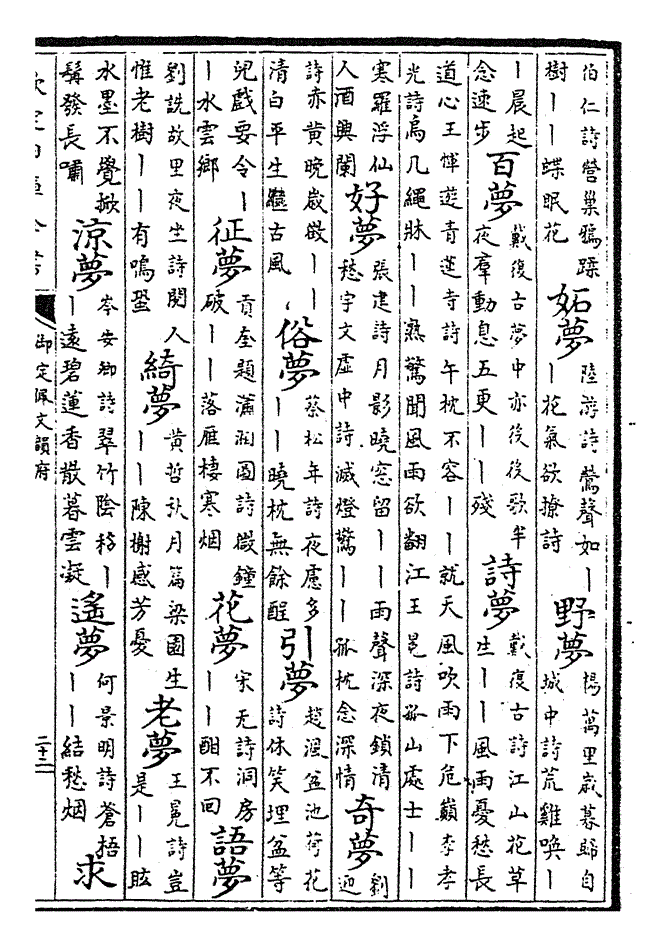 伯仁詩營巢鴉踩
樹丨丨蝶眠花
妬夢
陸游詩鶯聲如丨
丨花氣欲撩詩
野夢
楊萬里嵗暮歸自
城中詩荒雞喚丨
丨晨起
念速步
百夢
戴復古夢中亦後後歌半
夜羣動息五更丨丨殘
詩夢
戴復古詩江山花草
生丨丨風雨憂愁長
道心王惲遊青蓮寺詩午枕不容丨丨就天風吹雨下危巔李孝
光詩烏几繩牀丨丨熟驚聞風雨欲翻江王冕詩孤山處士丨丨
寒羅浮仙
人酒興闌
好夢
張建詩月影曉窓留丨丨雨聲深夜鎖清
愁宇文虛中詩滅燈驚丨丨孤枕念深情
奇夢
劉
迎
詩赤黄晚嵗丨丨
清白平生繼古風
俗夢
蔡松年詩夜慮多
丨丨曉枕無餘酲
引夢
趙渢盆池荷花
詩休笑埋盆等
兒戲要令丨
丨水雲鄉
征夢
貢奎題瀟湘圖詩微鐘
破丨丨落雁棲寒烟
花夢
宋无詩洞房
丨丨酣不回
語夢
劉詵故里夜坐詩閱人
惟老樹丨丨有鳴蛩
綺夢
黄哲秋月篇梁園生
丨丨陳榭感芳憂
老夢
王冕詩豈
是丨丨眩
水墨不覺掀
髯發長嘯
涼夢
岑安卿詩翠竹陰移丨
丨遠碧蓮香散暮雲凝
遙夢
何景明詩蒼梧
丨丨結愁烟
求
欽定四庫全書
御定佩文韻府
二十二